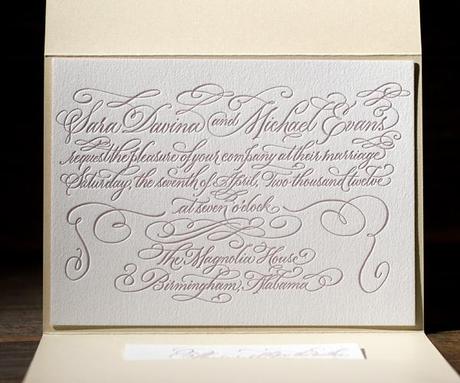 Sara Davina and Michael Evans
request the pleasure of your company at their marriage
Saturday, the seventh of April, Two thousand twelve
at seven o'clock
The Magnolia House
Birmingham, Alabama